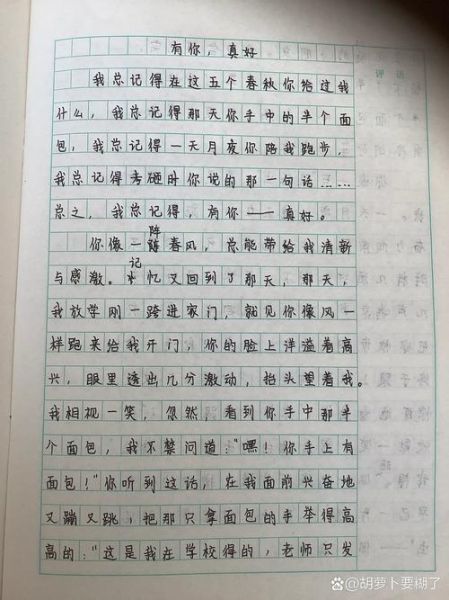 有你，真好
评语
我总记得在这五个春秋你给过我
什么，我总记得那天你手中的半个面
包，我总记得一天月夜你陪我跑步，
我总记得考砸时你说的那一句话……
总之，我总记得，有你——真好。
你像一阵春风，总能带给我清新
与感激。记忆又回到了那天，那天，
我放学刚一跨进家门，就见你像风一
样跑来给我开门，你的脸上洋溢着高
兴，眼里透出几分激动，抬头望着我。
我相视一笑，忽然，看到你手中那半
个面包，我不禁问道："嘿！你手上有
面包！"你听到这话，在我面前兴奋地
又蹦又跳，把那只拿面包的手举得高
高的："这是我在学校得的，老师只发
百家号/胡萝卜要糊了